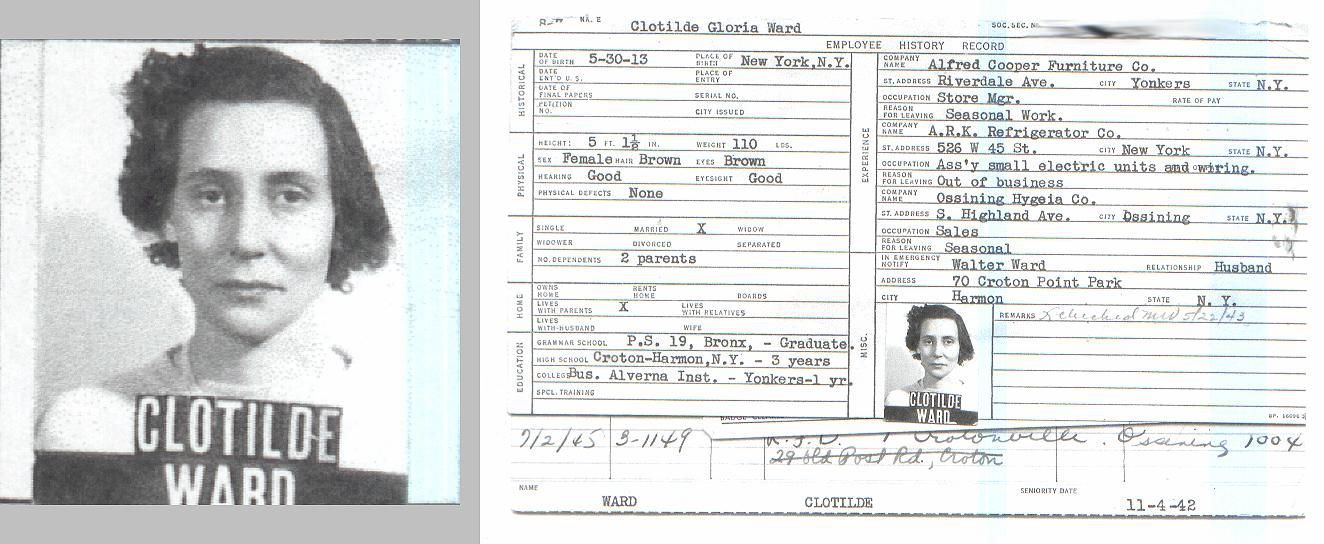 CLOTILDE
WARD
NA. E Clotilde Gloria Ward SOC. SEC. No.
EMPLOYEE HISTORY RECORD
HISTORICAL
DATE OF BIRTH 5-30-13 PLACE OF BIRTH New York, N.Y.
DATE ENT'D U.S. PLACE OF ENTRY
DATE OF FINAL PAPERS SERIAL NO.
PETITION NO. CITY ISSUED
PHYSICAL
HEIGHT: 5 FT. 1½ IN. WEIGHT 110 LBS.
SEX Female HAIR Brown EYES Brown
HEARING Good EYESIGHT Good
PHYSICAL DEFECTS None
FAMILY
SINGLE MARRIED X WIDOW
WIDOWER DIVORCED SEPARATED
NO. DEPENDENTS 2 parents
HOME
OWNS HOME RENTS HOME BOARDS
LIVES WITH PARENTS X LIVES WITH RELATIVES
LIVES WITH-HUSBAND WIFE
EDUCATION
GRAMMAR SCHOOL P.S. 19, Bronx, - Graduate.
HIGH SCHOOL Croton-Harmon, N.Y. - 3 years
COLLEGE Bus. Alverna Inst. - Yonkers-1 yr.
SPCL. TRAINING
EXPERIENCE
COMPANY NAME Alfred Cooper Furniture Co.
ST. ADDRESS Riverdale Ave. CITY Yonkers STATE N.Y.
OCCUPATION Store Mgr. RATE OF PAY
REASON FOR LEAVING Seasonal Work.
COMPANY NAME A.R.K. Refrigerator Co.
ST. ADDRESS 526 W 45 St. CITY New York STATE N.Y.
OCCUPATION Ass'y small electric units and wiring.
REASON FOR LEAVING Out of business
COMPANY NAME Ossining Hygeia Co.
ST. ADDRESS S. Highland Ave. CITY Ossining STATE N.Y.
OCCUPATION Sales
REASON FOR LEAVING Seasonal
MISC.
IN EMERGENCY NOTIFY Walter Ward RELATIONSHIP Husband
ADDRESS 70 Croton Point Park
CITY Harmon STATE N. Y.
REMARKS 5/22/43
CLOTILDE
WARD
7/2/45 3-1149 Crotonville. Ossining 1004
29 Old Post Rd., Croton
NAME WARD CLOTILDE SENIORITY DATE 11-4-42